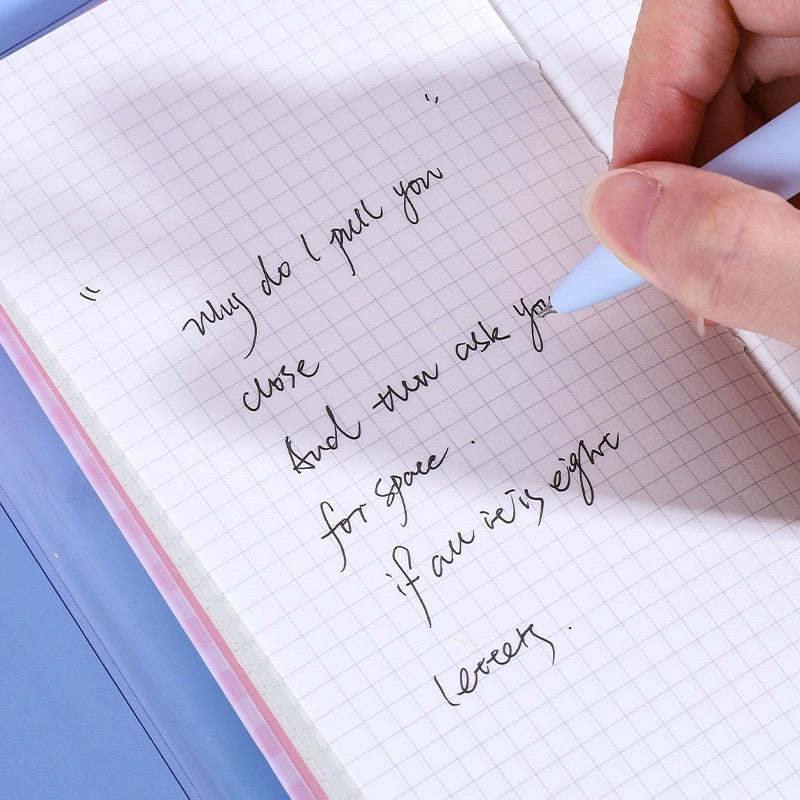 "
"
Why do I pull you
close
And then ask you
for space.
if all it is eight
letters.